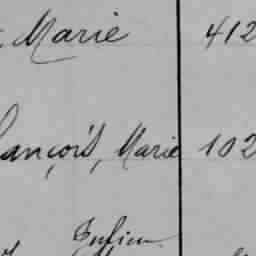 Marie 412
ançois, Marie 102
Julien